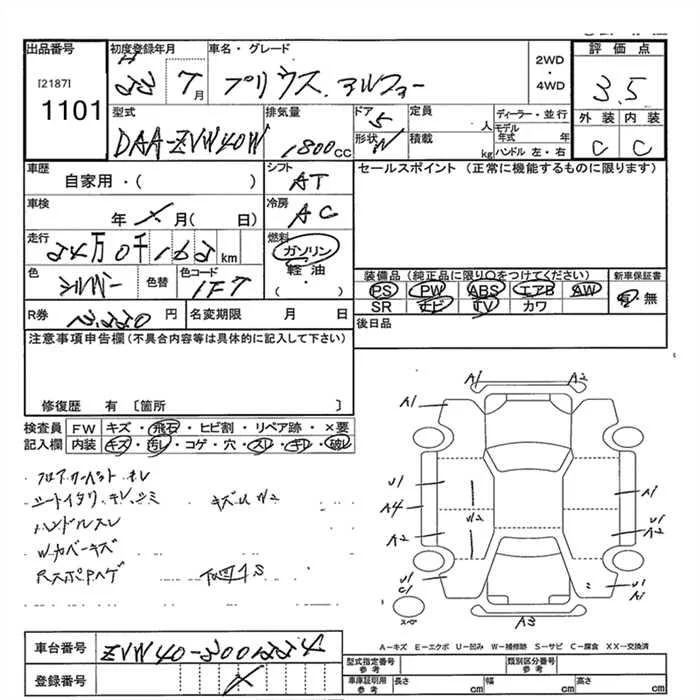 出品番号
[2187]
1101
初度登録年月
H
23 7月
車名・グレード
プリウス アルファー
2WD
・
4WD
評価点
3.5
型式
DAA-ZVW40W
排気量
1800cc
ドア
5
形状
W
定員
人
積載
kg
ディーラー・並行
モデル年式 年
ハンドル 左・右
外装 内装
C C
車歴
自家用・( )
シフト
AT
セールスポイント (正常に機能するものに限ります)
車検
年 月( 日)
冷房
AC
走行
24万0千162km
燃料
ガソリン
・
軽油
・
( )
色
シルバー
色替
色コード
1F7
装備品(純正品に限り○をつけてください)
新車保証書
PS PW ABS エアB AW
有・無
SR ナビ TV カワ
R券
円
名変期限 月 日
後日品
注意事項申告欄(不具合内容等は具体的に記入して下さい)
修復歴 有〔箇所 〕
検査員記入欄
FW キズ・飛石・ヒビ割・リペア跡・×要
内装 キズ・汚レ・コゲ・穴・スレ・キレ・破レ
フロアカーペット キレ
ハンドルスレ
Wカバーキズ
A1 A2
A1
U1
A4
A2
U2
A1
U1
A2
U1
C1
U1
A1
A3
スペア
A-キズ E-エクボ U-凹み W-補修跡 S-サビ C-腐食 XX-交換済
車台番号
ZVW40-3001224
登録番号
型式指定番号
参考
類別区分番号
参考
車庫証明用
参考
長さ cm
幅 cm
高さ cm